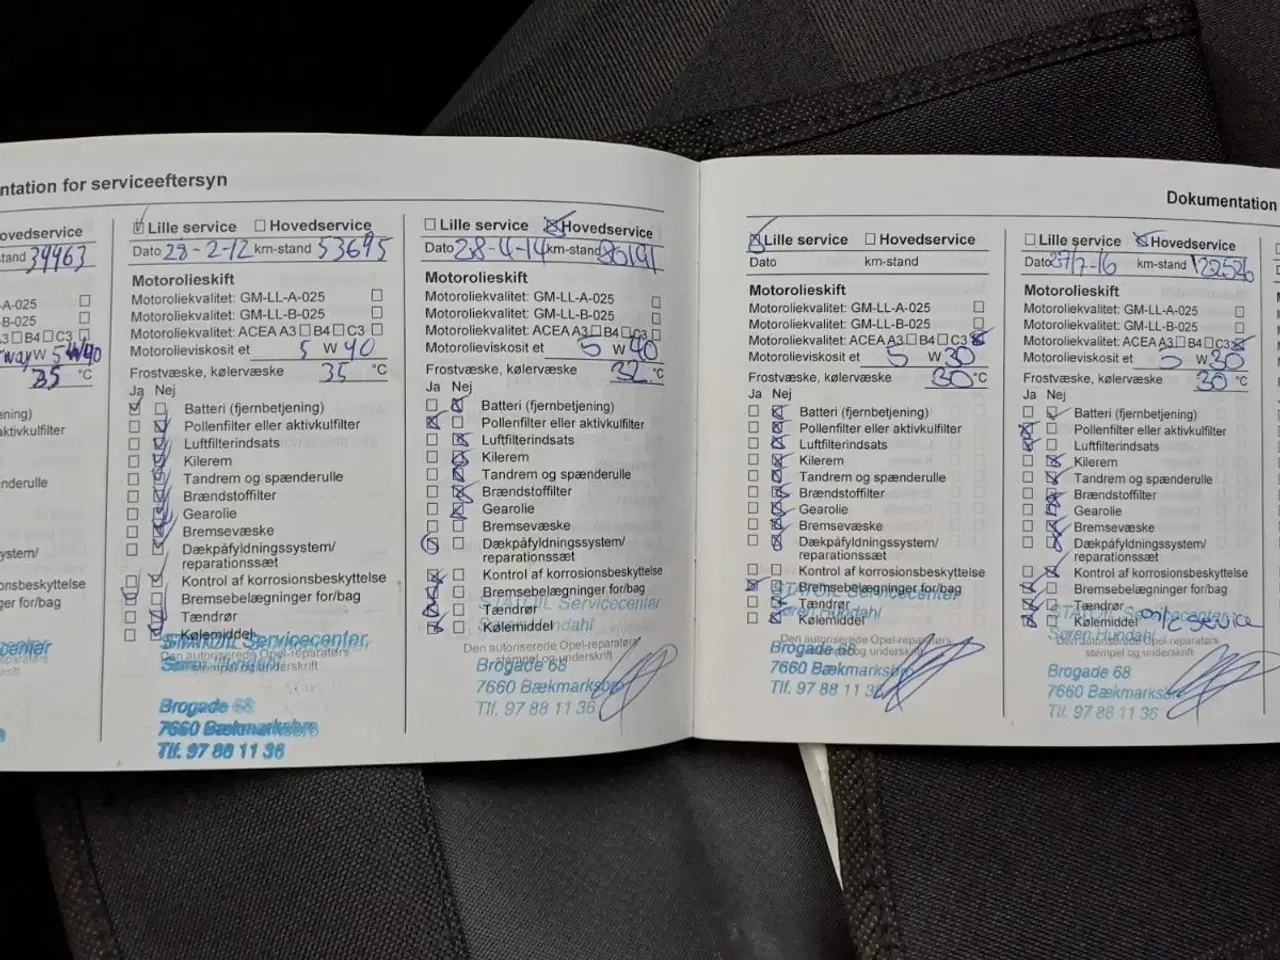 ntation for serviceeftersyn
ovedservice
tand 39463
-A-025
-B-025
A3 B4 C3
W 5W40
35 °C
ening)
aktivkulfilter
nderulle
ystem/
skyttelse
ger for/bag
center
Lille service Hovedservice
Dato 28-2-12 km-stand 53695
Motorolieskift
Motoroliekvalitet: GM-LL-A-025
Motoroliekvalitet: GM-LL-B-025
Motoroliekvalitet: ACEA A3 B4 C3
Motorolieviskosit et 5 W 40
Frostvæske, kølervæske 35 °C
Ja Nej
Batteri (fjernbetjening)
Pollenfilter eller aktivkulfilter
Luftfilterindsats
Kilerem
Tandrem og spænderulle
Brændstoffilter
Gearolie
Bremsevæske
Dækpåfyldningssystem/
reparationssæt
Kontrol af korrosionsbeskyttelse
Bremsebelægninger for/bag
Tændrør
Kølemiddel
STATOIL Servicecenter
Den autoriserede Opel-reparatørs
Søren Hundahl
stempel og underskrift
Brogade 68
7660 Bækmarksbro
Tlf. 97 88 11 36
Lille service Hovedservice
Dato 28-4-14 km-stand 86191
Motorolieskift
Motoroliekvalitet: GM-LL-A-025
Motoroliekvalitet: GM-LL-B-025
Motoroliekvalitet: ACEA A3 B4 C3
Motorolieviskosit et 5 W 40
Frostvæske, kølervæske 32 °C
Ja Nej
Batteri (fjernbetjening)
Pollenfilter eller aktivkulfilter
Luftfilterindsats
Kilerem
Tandrem og spænderulle
Brændstoffilter
Gearolie
Bremsevæske
Dækpåfyldningssystem/
reparationssæt
Kontrol af korrosionsbeskyttelse
Bremsebelægninger for/bag
Tændrør
STATOIL Servicecenter
Kølemiddel
Søren Hundahl
Den autoriserede Opel-reparatørs
stempel og underskrift
Brogade 68
7660 Bækmarksbro
Tlf. 97 88 11 36
Dokumentation
Lille service Hovedservice
Dato km-stand
Motorolieskift
Motoroliekvalitet: GM-LL-A-025
Motoroliekvalitet: GM-LL-B-025
Motoroliekvalitet: ACEA A3 B4 C3
Motorolieviskosit et 5 W 30
Frostvæske, kølervæske 30 °C
Ja Nej
Batteri (fjernbetjening)
Pollenfilter eller aktivkulfilter
Luftfilterindsats
Kilerem
Tandrem og spænderulle
Brændstoffilter
Gearolie
Bremsevæske
Dækpåfyldningssystem/
reparationssæt
Kontrol af korrosionsbeskyttelse
Bremsebelægninger for/bag
STATOIL Servicecenter
Tændrør
Søren Hundahl
Kølemiddel
Den autoriserede Opel-reparatørs
stempel og underskrift
Brogade 68
7660 Bækmarksbro
Tlf. 97 88 11 36
Lille service Hovedservice
Dato 27/7-16 km-stand 122526
Motorolieskift
Motoroliekvalitet: GM-LL-A-025
Motoroliekvalitet: GM-LL-B-025
Motoroliekvalitet: ACEA A3 B4 C3
Motorolieviskosit et 5 W 30
Frostvæske, kølervæske 30 °C
Ja Nej
Batteri (fjernbetjening)
Pollenfilter eller aktivkulfilter
Luftfilterindsats
Kilerem
Tandrem og spænderulle
Brændstoffilter
Gearolie
Bremsevæske
Dækpåfyldningssystem/
reparationssæt
Kontrol af korrosionsbeskyttelse
Bremsebelægninger for/bag
Tændrør
STATOIL Servicecenter
Kølemiddel service
Søren Hundahl
Den autoriserede Opel-reparatørs
stempel og underskrift
Brogade 68
7660 Bækmarksbro
Tlf. 97 88 11 36